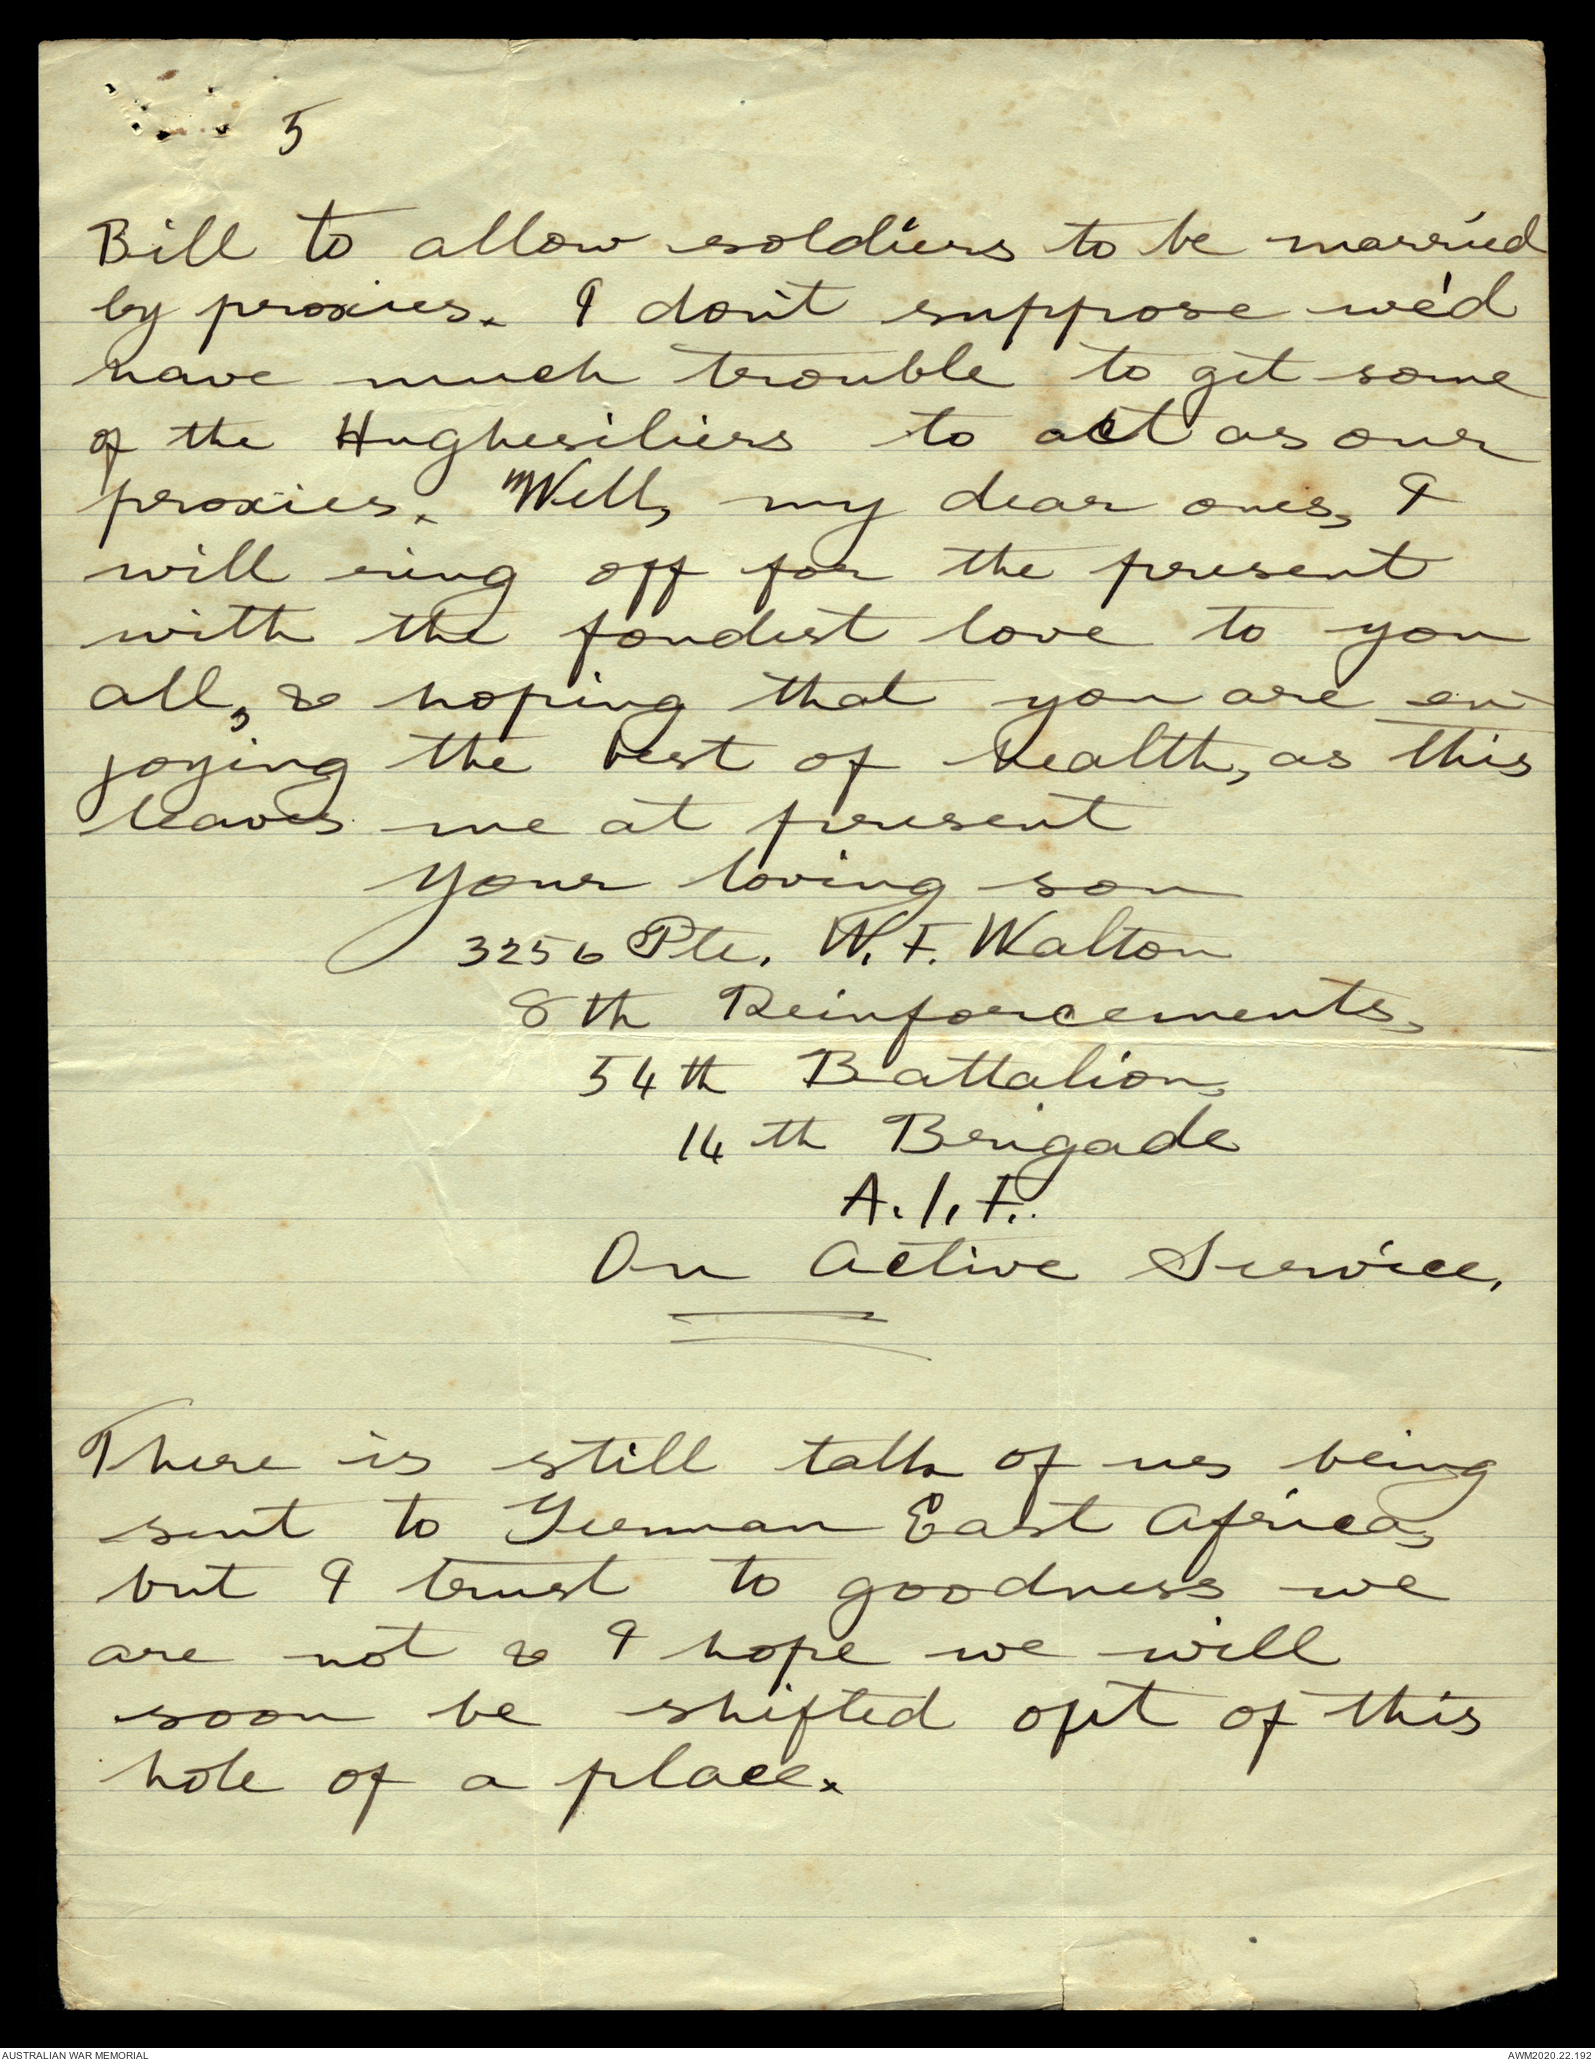 5
Bill to allow soldiers to be married
by proxies. I don't suppose we'd
have much trouble to get some
of the Hughesiliers to act as our
proxies. Well, my dear ones, I
will ring off for the present
with the fondest love to you
all, & hoping that you are en-
joying the best of health, as this
leaves me at present
Your loving son
3256 Pte. W. F. Walton
8th Reinforcements,
54th Battalion,
14th Brigade
A.I.F.
On Active Service.
There is still talk of us being
sent to German East Africa,
but I trust to goodness we
are not & I hope we will
soon be shifted out of this
hole of a place.
AUSTRALIAN WAR MEMORIAL
AWM2020.22.192